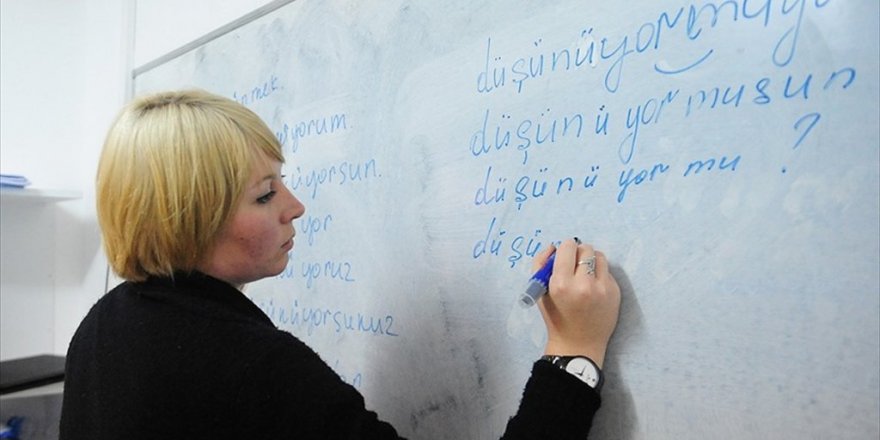 nmek.
yorum.
üyorsun.
yor
yoruz
nüyorsunuz
düşünüyor muyu
düşünüyor musun
düşünüyor mu ?
düşü